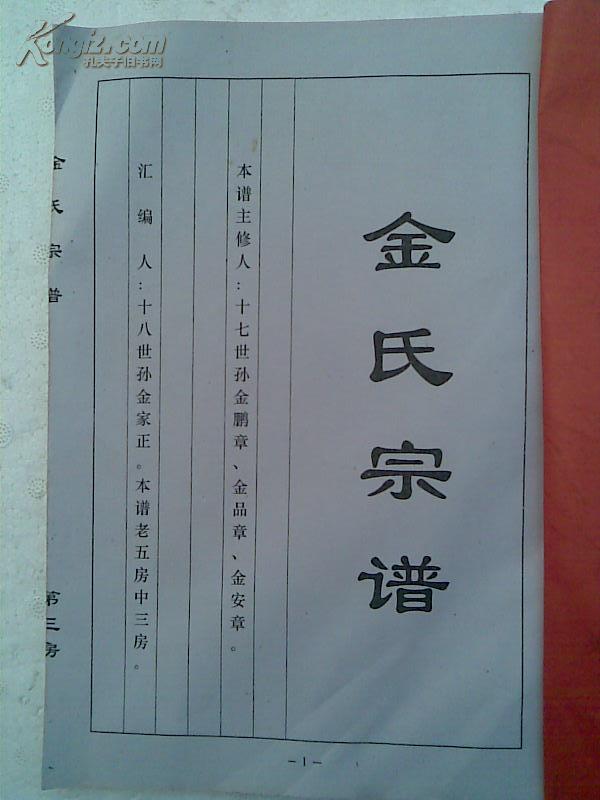 Kongfz.com
孔夫子旧书网
金氏宗谱
本谱主修人：十七世孙金鹏章、金品章、金安章。
汇编人：十八世孙金家正。本谱老五房中三房。
金氏宗谱
第三房
—1—